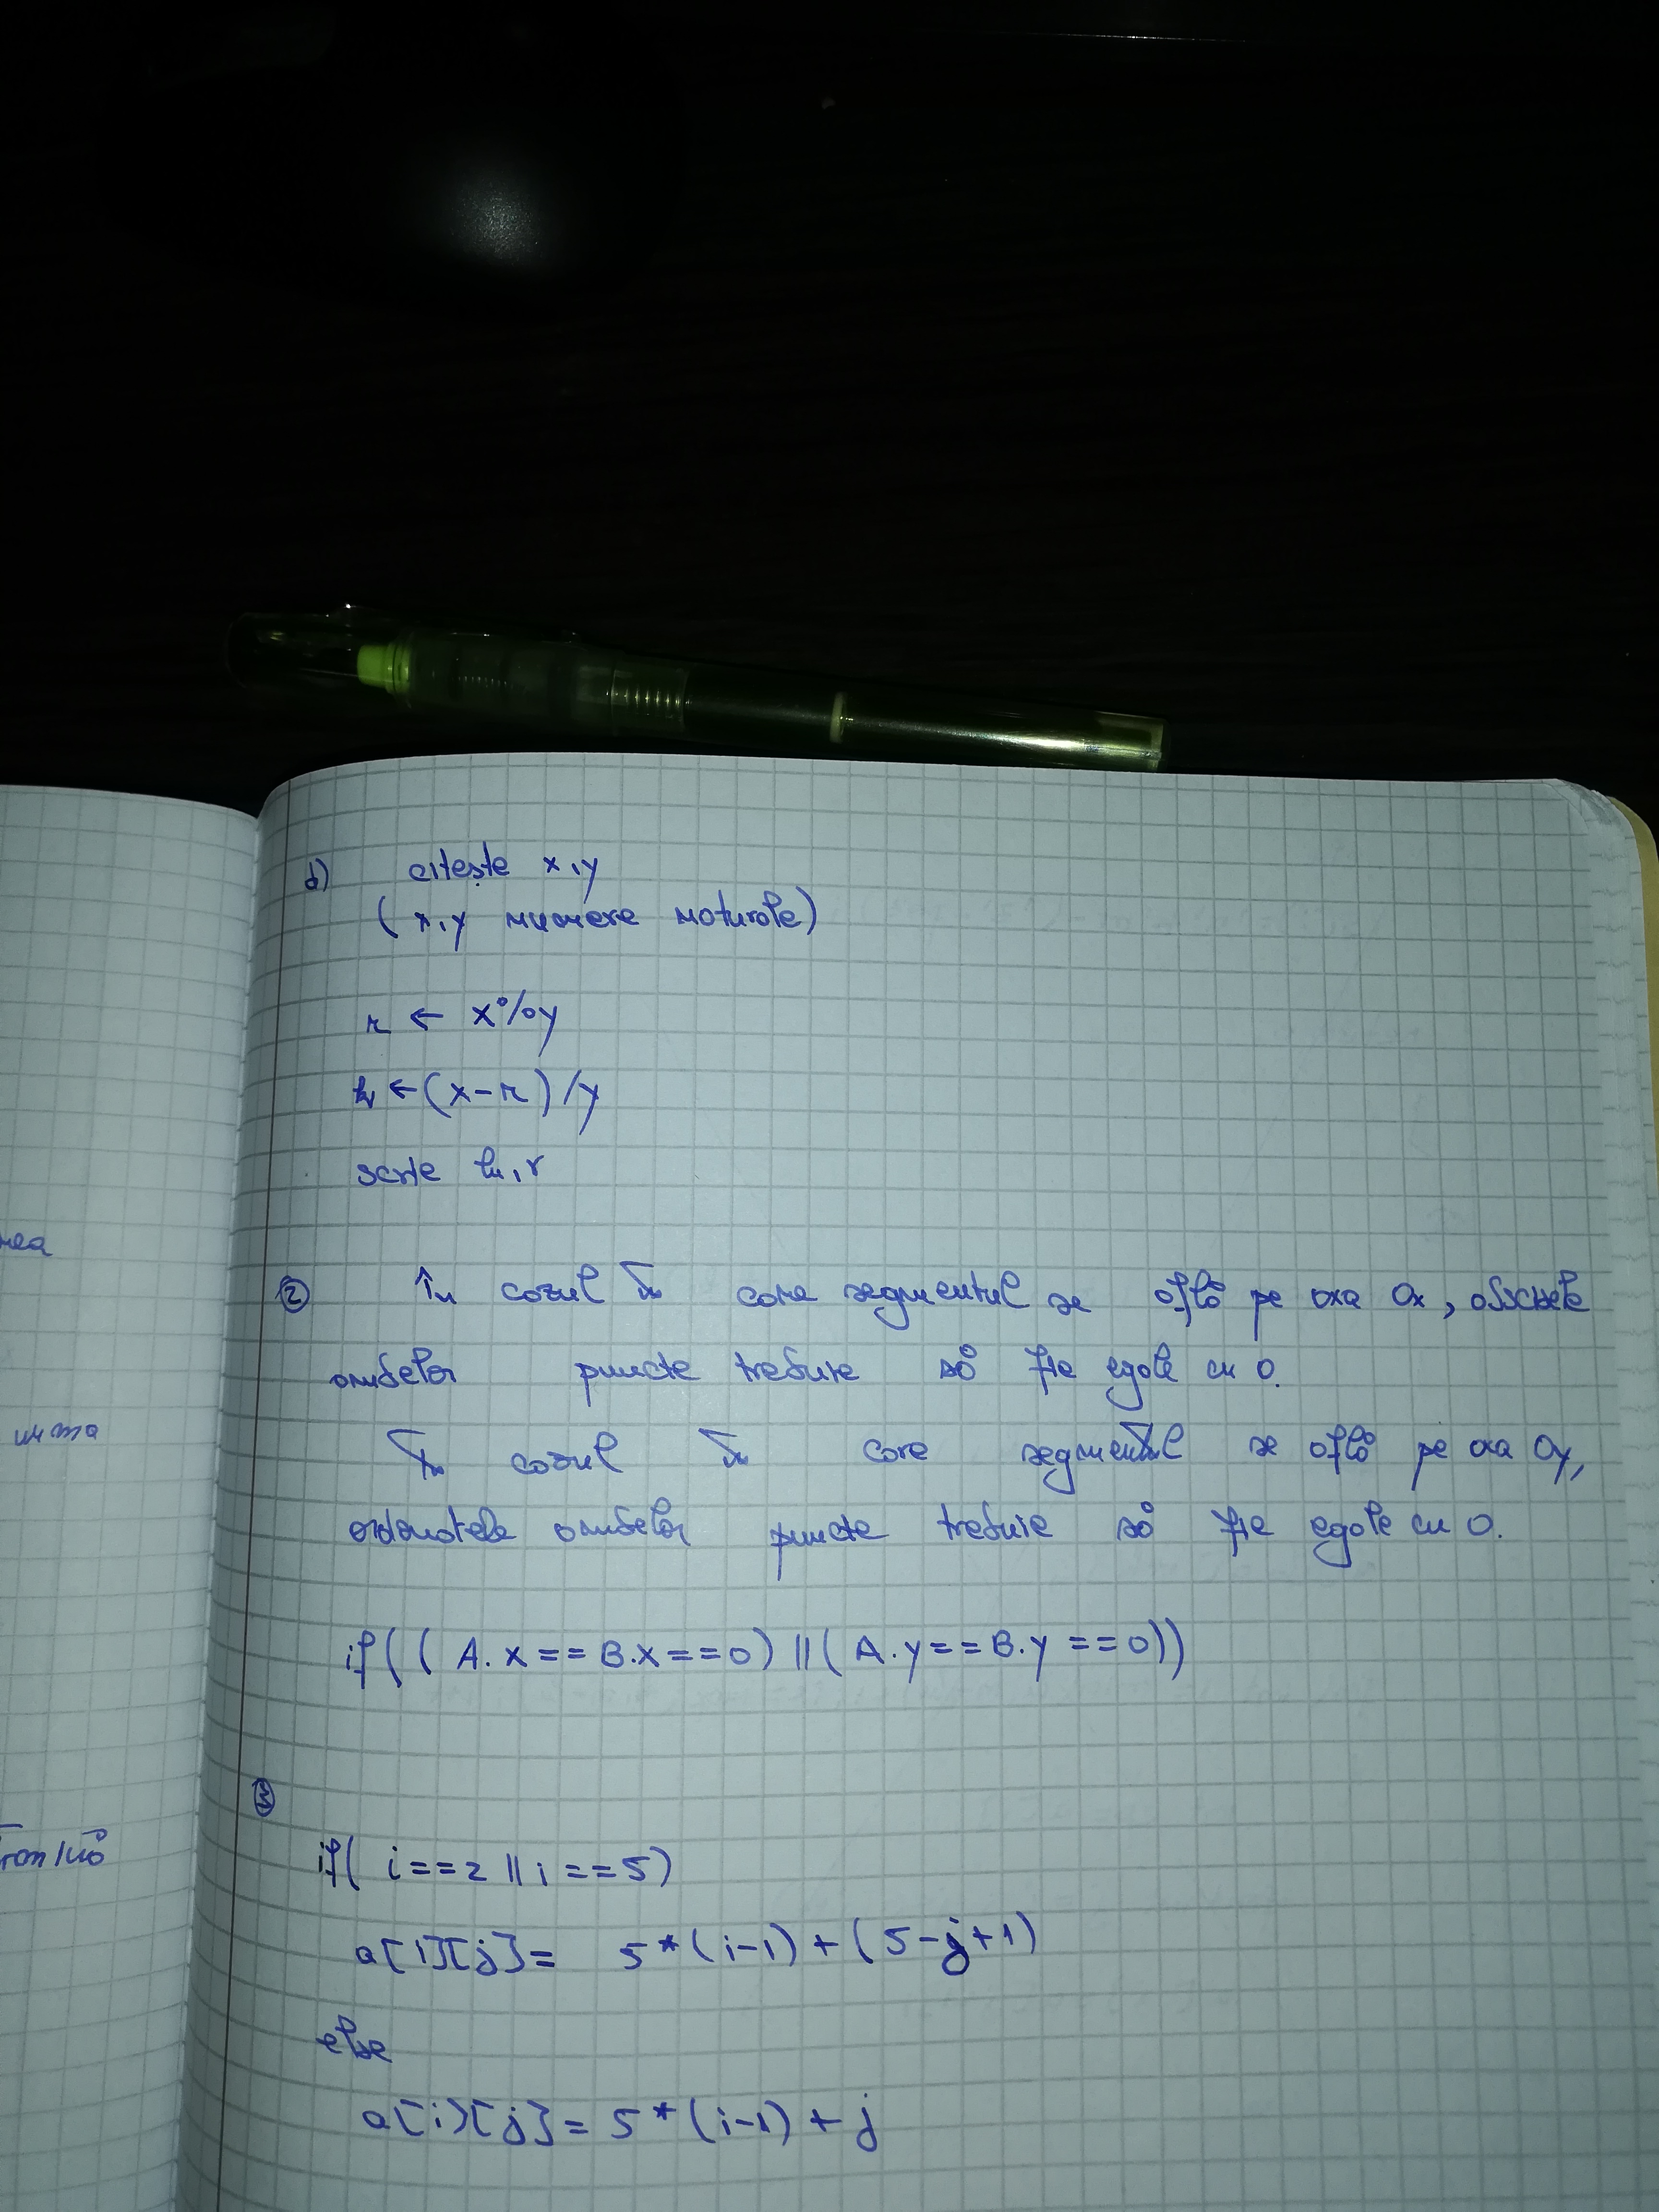 d) citește x,y
(x,y numere naturale)
r ← x%y
k ← (x-r)/y
scrie k,r
nea
② În cazul în care segmentul se află pe axa Ox, abscisele
ambelor puncte trebuie să fie egale cu 0.
În cazul în care segmentul se află pe axa Oy,
ordonatele ambelor puncte trebuie să fie egale cu 0.
if((A.x==B.x==0)||(A.y==B.y==0))
③
if(i==2||i==5)
a[i][j]= 5*(i-1)+(5-j+1)
else
a[i][j]=5*(i-1)+j